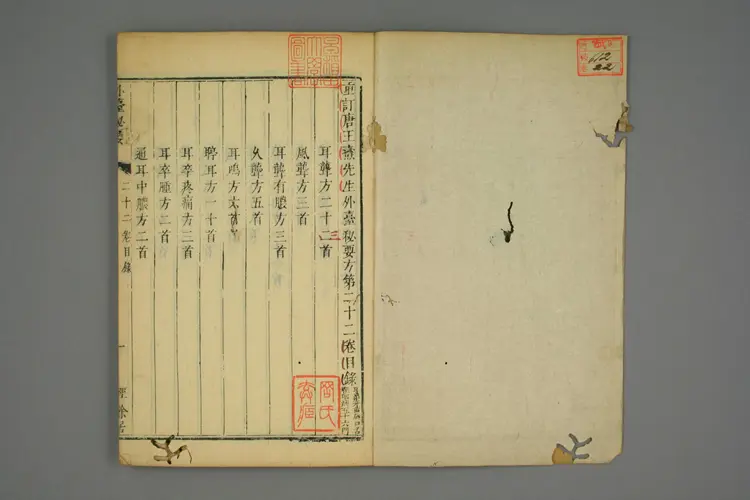 重訂唐王燾先生外臺秘要方第二十二卷目錄
耳聾方二十二首
三
風聾方三首
耳聾有膿方三首
久聾方五首
耳鳴方六首
聤耳方一十首
耳卒疼痛方三首
耳卒腫方二首
通耳中膿方二首
外臺秘要
二十二卷目錄
一
經
112
22